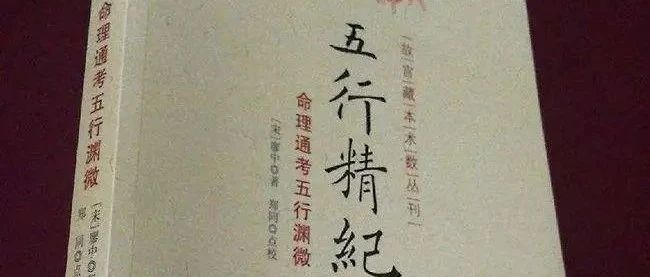 故宫藏本术数丛刊
五行精紀
命理通考五行渊微
［宋］廖中◎著　郑同◎点校
命理通考五行渊微
［宋］廖中◎
郑同◎点